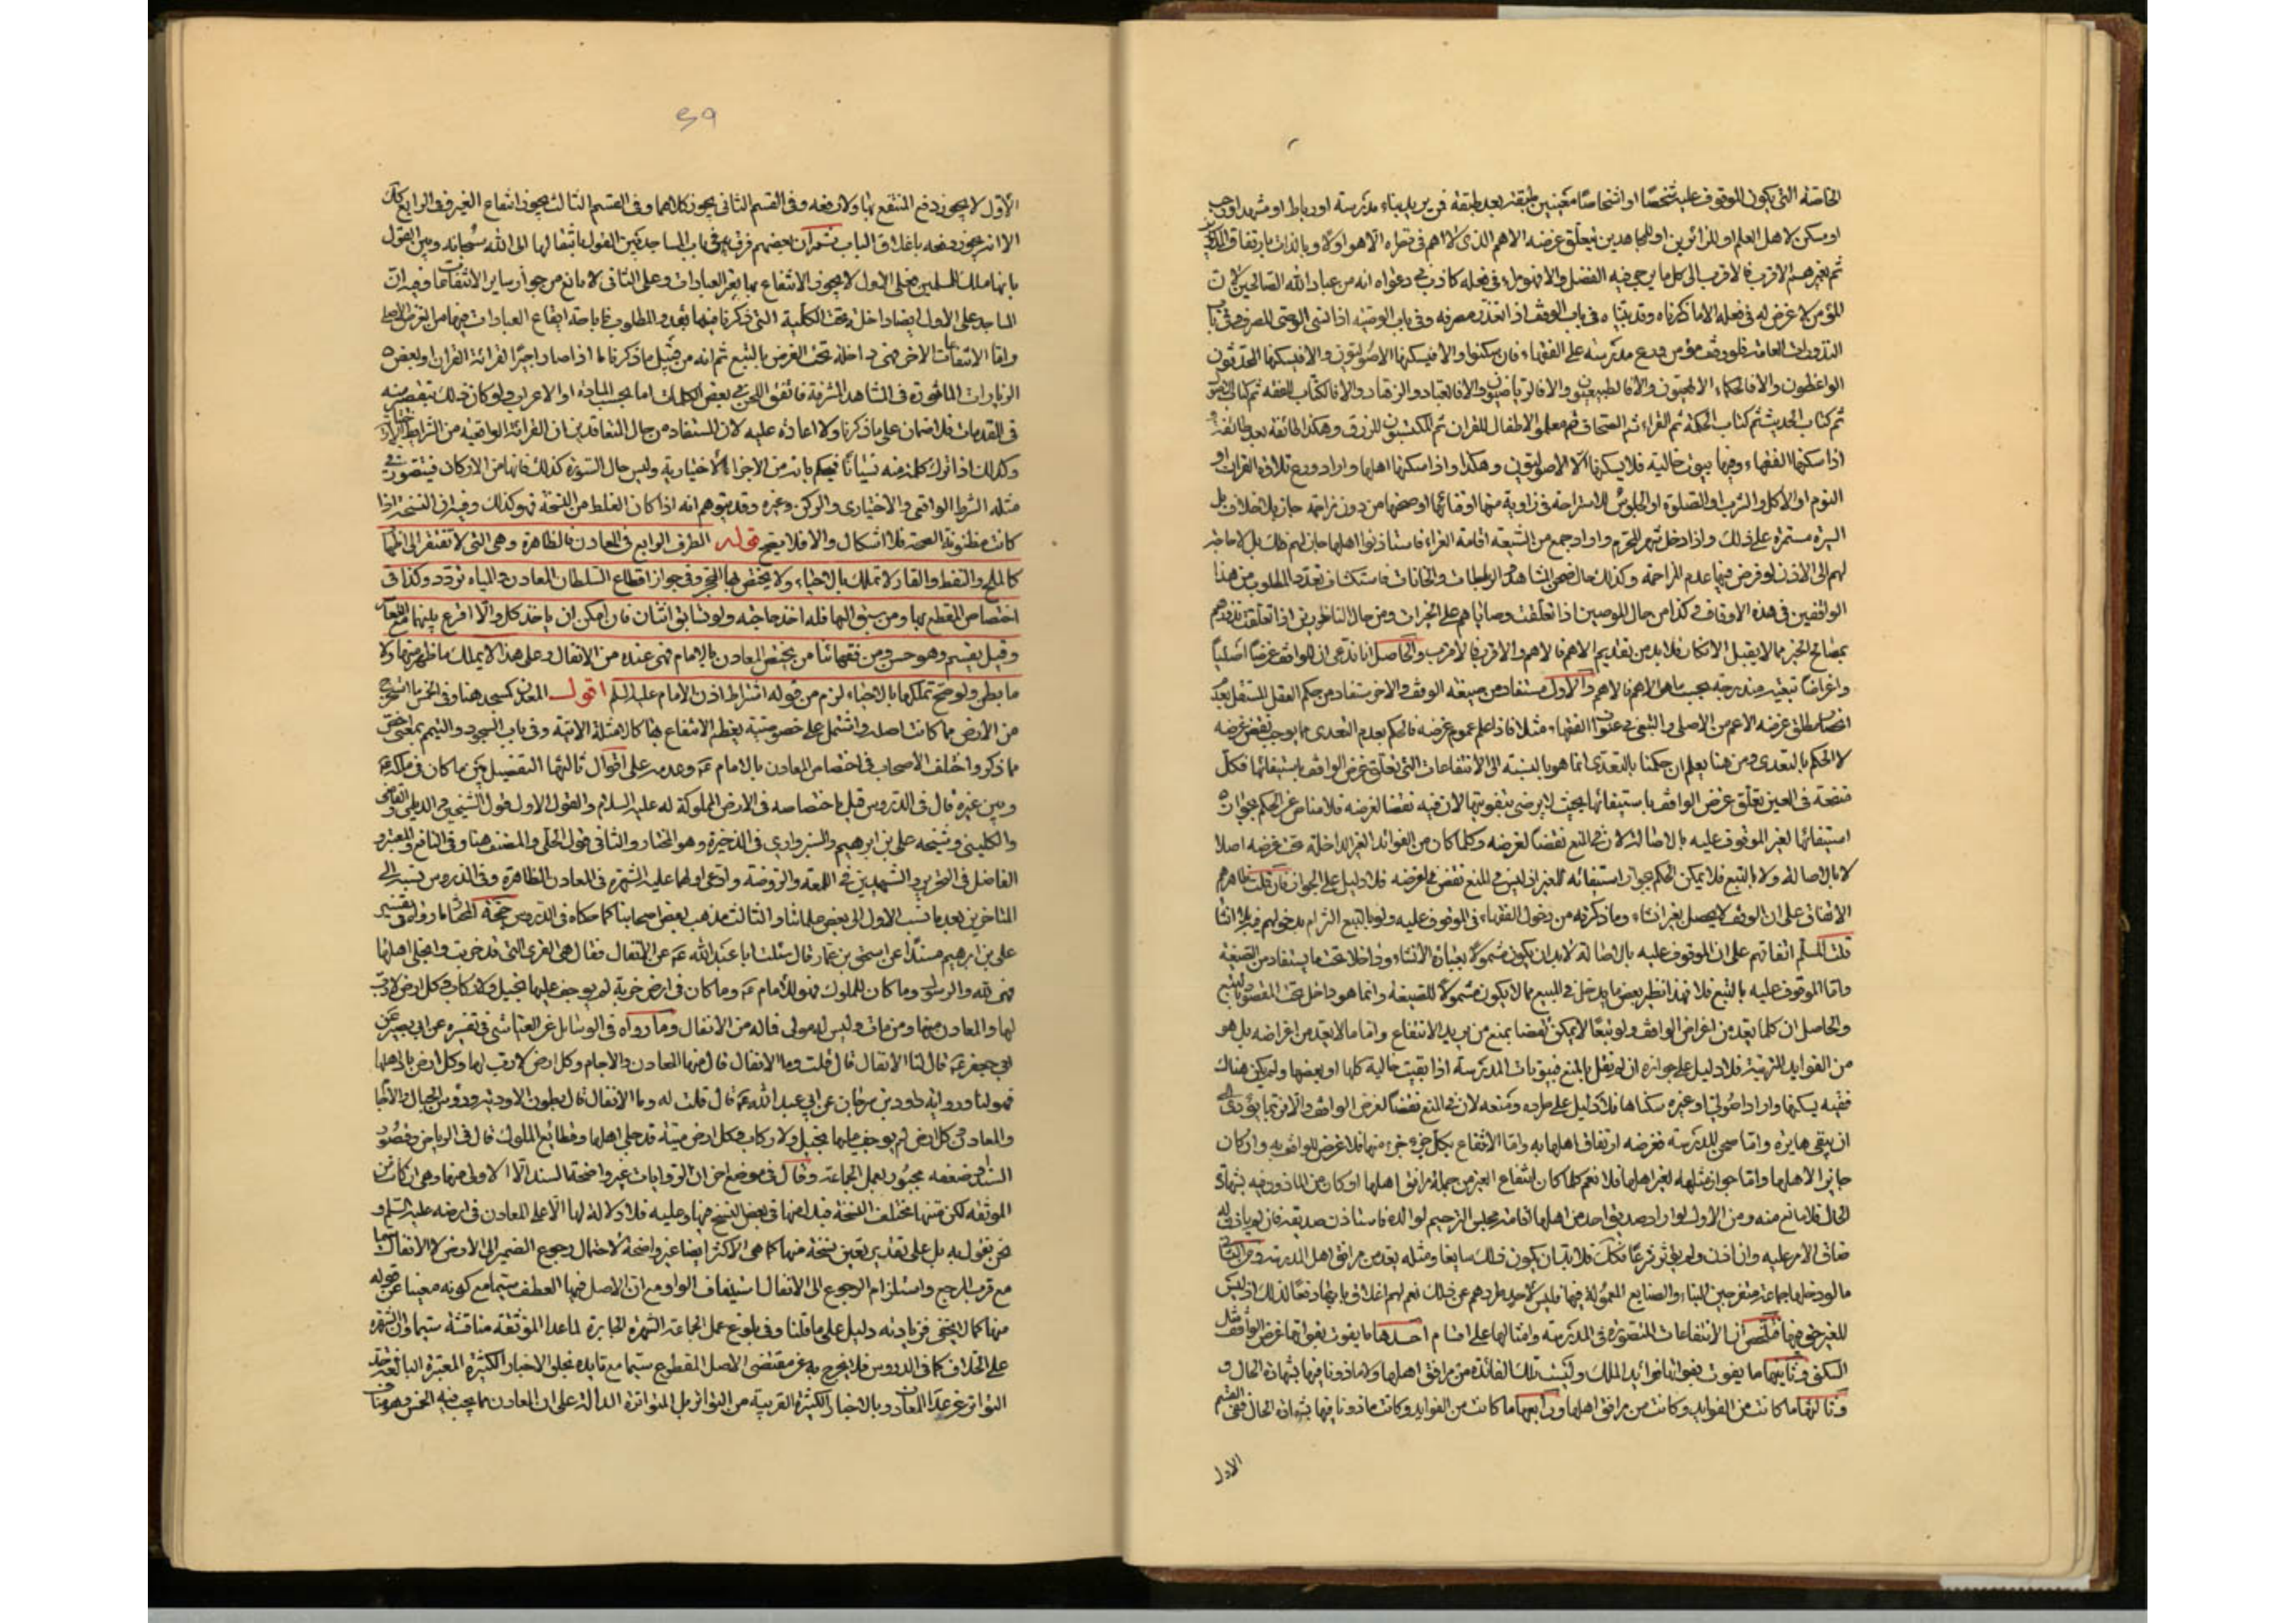 الخاصة التى يكون الموقوف عليه شخصًا او اشخاصًا معينين طبقة بعد طبقة فمن يريد بناء مدرسة او رباط او مشهد
او مسكن لاهل العلم او للزائرين او للمجاهدين
ثم بغيرهم الاقرب فالاقرب الى كل ما يرجى فيه الفضل والا فهو كاذب فى دعواه انه من عباد الله الصالحين
المؤمن لا غرض له فى فعله الا ما ذكرناه وقد بيناه فى باب الوقف اذا تعذر مصرفه وفى باب الوصية اذا نسى الوصى المصرف
النذورات العامة فلو وقف مؤمن مدرسة على الفقهاء فان سكنوا والا فيسكنها الاصوليون والا فيسكنها المحدثون
الواعظون والا فالحكماء الالهيون والا فالطبيعيون والا فالرياضيون والا فالعباد والزهاد والا فالكتاب للفقه
ثم كتاب الحديث ثم كتاب الحكمة ثم القراء ثم الصحاف ثم معلموا الاطفال للقران ثم المكتسبون للرزق وهكذا طائفة بعد طائفة
اذا سكنها الفقهاء وفيها بيوت خالية فلا يسكنها الا الاصوليون وهكذا واذا سكنها اهلها واراد ورع تلاوة القران او
النوم او الاكل والشرب والصلوة او الجلوس للاستراحة فى زاوية منها او فنائها او صحنها من دون مزاحمة جاز بلا خلاف بل
السيرة مستمرة على ذلك واذا دخل شهر المحرم واراد جمع من الشيعة اقامة العزاء فاستاذنوا اهلها جاز لهم ذلك بل لا حاجة
لهم الى الاذن لو فرض فيها عدم المزاحمة وكذلك حال صحن المشاهد والرباطات والخانات
الواقفين فى هذه الاوقاف وكذا من حال الموصين اذا تعلقت وصاياهم على الخيرات ومن حال الناذرين اذا تعلقت نذورهم
بمصالح الخير مما لا يقبل الانكار فلابد من تقديم الاهم فالاهم والاقرب فالاقرب والحاصل انا ندعى ان للواقف غرضًا اصليًا
واغراضًا تبعية مندرجة بحسب ما هى الاهم فالاهم والاول مستفاد من صيغة الوقف والاخر مستفاد من حكم العقل المستقل
لا الحكم بالتعدى ومن هنا يعلم ان حكمنا بالتعدى انما هو بالنسبة الى الانتفاعات التى تعلق غرض الواقف باستيفائها فكل
منفعة فى العين تعلق غرض الواقف باستيفائها بحيث لا يرضى بتفويتها لان فيه نقضا لغرضه فلا مناص عن الحكم بجواز
استيفائها لغير الموقوف عليه بالاصالة لان فى المنع نقضًا لغرضه وكلما كان من الفوائد الغير الداخلة تحت غرضه اصلا
لا بالاصالة ولا بالتبع فلا يمكن الحكم بجواز استيفائه للغير اذ ليس فى المنع نقض لغرضه فلا دليل على الجواز فان قلت ظاهرهم
الاتفاق على ان الوقف لا يحصل بغير انشاء وما ذكرته من دخول الفقهاء فى الموقوف عليه ولو بالتبع التزام بدخولهم فيه بلا انشاء
قلت المسلم اتفاقهم على ان الموقوف عليه بالاصالة لابد ان يكون مشمولًا بعبارة الانشاء وداخلا تحت ما يستفاد من الصيغة
واما الموقوف عليه بالتبع فلا فهذا نظير بعض ما يدخل فى المبيع مما لا يكون مشمولًا للصيغة وانما هو داخل تحت المقصود بالتبع
والحاصل ان كلما يعد من اغراض الواقف ولو تبعًا لا يمكن نقضها بمنع من يريد الانتفاع واما ما لا يعد من اغراضه بل هو
من الفوايد فلا دليل على جوازه ان لم نقل بالمنع فبيوتات المدرسة اذا بقيت خالية كلها او بعضها ولم يكن هناك
فقيه يسكنها واراد اصولى او غيره سكناها فلا دليل على طرده ومنعه لان فى المنع نقضًا لغرض الواقف
ان يبقى بائرة واما صحن المدرسة فغرضه ارتفاق اهلها به واما الانتفاع بكل جزء جزء منها فلا غرض للواقف به وان كان
جايز الاهلها واما جواز مثلهه لغير اهلها فلا نعم كلما كان انتفاع الغير من جملة مرافق اهلها او كان من الماذون فيه بشهادة
الحال فلا مانع منه ومن الاول لو اراد صديق احد من اهلها اقامة مجلس الترحيم لوالده فاستاذن صديقه فان لم ياذن له
ضاق الامر عليه وان اذن ولم يؤثر شرعًا فلابد ان يكون ذلك سايغا ومثله يعد من مرافق اهل المدرسة ومن الثانى
ما لو دخلها جماعة متفرجين للبناء والصنايع المعمولة فيها فليس لاحد طردهم عن ذلك نعم لهم اغلاق بابها دفعًا لذلك اذ ليس
للغير حق فيها فتلخص ان الانتفاعات المتصورة فى المدرسة وامثالها على اقسام احدها ما يفوت بفواتها غرض الواقف مثل
السكنى وثانيها ما يفوت بفواتها فوائد الملك وليست تلك الفائدة من مرافق اهلها ولا ماذونا فيها بشهادة الحال و
وثالثها ما كانت من الفوايد وكانت من مرافق اهلها ورابعها ما كانت من الفوايد وكانت ماذونا فيها بشهادة الحال ففى القسم
الاول
٤٩
الاول لا يجوز دفع المنتفع بها ولا رفعه وفى القسم الثانى يجوز كلاهما وفى القسم الثالث يجوز انتفاع الغير وفى الرابع كك
الا انه يجوز دفعه باغلاق الباب ثم ان بعضهم فرق فى باب المساجد بين القول بانتقالها الى الله سبحانه وبين القول
بانها ملك للمسلمين فعلى الاول لا يجوز الانتفاع بها بغير العبادات وعلى الثانى لا مانع من جواز ساير الانتفاعات وفيه ان
المساجد على الاول ايضا داخل تحت الكلية التى ذكرنا فيها بعد والمطلوب اباحة ايقاع العبادات فيها من الغرض الاصلى
واما الانتفاعات الاخر فهى داخلة تحت الغرض بالتبع ثم انه من قبيل ما ذكرنا ما اذا صار اجيرًا لقرائة القران او بعض
الزيارات الماثورة فى المشاهد المشرفة فاتفق اللحن فى بعض الكلمات اما بحسب المادة او الاعراب ولو كان ذلك بتقصير منه
فى المقدمات فلا ضمان على ما ذكرنا ولا اعادة عليه لان المستفاد من حال المتعاقدين ان القرائة الواقعية من الشرايط
وكذلك اذا ترك كلمة منه نسيانًا فيحكم بانه من الاجزاء الاختيارية وليس حال السورة كذلك فانها من الاركان فيتصور فى
مثله الشرط الواقعى والاختيارى والركن وغيره وقد يتوهم انه اذا كان الغلط من النسخة فهو كذلك وفيه ان النسخة اذا
كانت مظنونة الصحة فلا اشكال والا فلا يصح قوله الطرف الرابع فى المعادن الظاهرة وهى التى لا تفتقر الى اظهار
كالملح والنفط والقار لا تملك بالاحياء ولا يختص بها المحجر وفى جواز اقطاع السلطان المعادن والمياه تردد وكذا فى
اختصاص المقطع بها ومن سبق اليها فله اخذ حاجته ولو تسابق اثنان فان امكن ان ياخذ كل والا اقرع بينهما مع التعاسر
وقيل يقسم وهو حسن ومن فقهائنا من يخص المعادن بالامام فهى عنده من الانفال وعلى هذا لا يملك ما ظهر منها ولا
ما بطن ولو صح تملكها بالاحياء لزم من قوله اشتراط اذن الامام عليه السلم اقول المعدن كمسجد هنا وفى الخمس ما استخرج
من الارض مما كانت اصله واشتمل على خصوصية يعظم الانتفاع بها كالامثلة الاتية وفى باب السجود والتيمم بمعنى اخص
مما ذكر واختلف الاصحاب فى اختصاص المعادن بالامام ع وعدمه على اقوال ثالثها التفصيل بين ما كان فى ملكه ع
وبين غيره قال فى الدروس قيل باختصاصه فى الارض المملوكة له عليه السلام والقول الاول قول الشيخين والديلمى والقاضى
والكلينى وشيخه على بن ابرهيم والسبزوارى فى الذخيرة وهو المختار والثانى قول الحلى والمصنف هنا وفى النافع والمعتبر و
الفاضل فى التحرير والشهيدين فى اللمعة والروضة وادعى اولهما عليه الشهرة فى المعادن الظاهرة وفى الدروس نسبه الى
المتاخرين بعد ما نسب الاول الى بعض علمائنا والثالث مذهب بعض اصحابنا كما حكاه فى الدروس حجة المختار ما رواه فى تفسير
على بن ابرهيم مسندًا عن اسحق بن عمار قال سئلت ابا عبد الله ع عن الانفال فقال هى القرى التى قد خربت وانجلى اهلها
فهى لله والرسول وما كان للملوك فهو للامام ع وما كان فى ارض خربة لم يوجف عليها بخيل ولا ركاب وكل ارض لا رب
لها والمعادن منها ومن مات وليس له مولى فماله من الانفال وما رواه فى الوسايل عن العياشى فى تفسيره عن ابى بصير عن
ابى جعفر ع قال لنا الانفال قال قلت وما الانفال قال منها المعادن والاجام وكل ارض لا رب لها وكل ارض باد اهلها
فهو لنا ورواية داود بن فرقان عن ابى عبد الله ع قال قلت له وما الانفال قال بطون الاودية ورؤس الجبال والاجام
والمعادن وكل ارض لم يوجف عليها بخيل ولا ركاب وكل ارض ميتة قد جلى اهلها وقطائع الملوك قال فى الرياض وقصور
السند او ضعفه مجبور بعمل الجماعة وقال فى موضع اخر ان الروايات غير واضحة السند الا الاولى منها وهى ان كانت من
الموثقة لكن متنها مختلف النسخة فبدل منها فى بعض النسخ فيها وعليه فلا دلالة لها الا على المعادن فى ارضه عليه السلم و
نحن نقول به بل على تقدير تعين نسخة منها كما هى الاكثر ايضا غير واضحة لاحتمال رجوع الضمير الى الارض لا الانفال سيما
مع قرب المرجع واستلزام الرجوع الى الانفال استيناف الواو مع ان الاصل فيها العطف سيما مع كونه مغنيا عن قوله
منها كما لا يخفى فزيادته دليل على ما قلنا وفى بلوغ عمل الجماعة الشهرة الجابرة لما عدا الموثقة مناقشة سيما وان الشهرة
على الخلاف كما فى الدروس فلا يخرج به عن مقتضى الاصل المقطوع سيما مع تايده بخلو الاخبار الكثيرة المعتبرة البالغة حد
التواتر عن عد المعادن وبالاخبار الكثيرة القريبة من التواتر بل المتواترة الدالة على ان المعادن مما يجب فيه الخمس